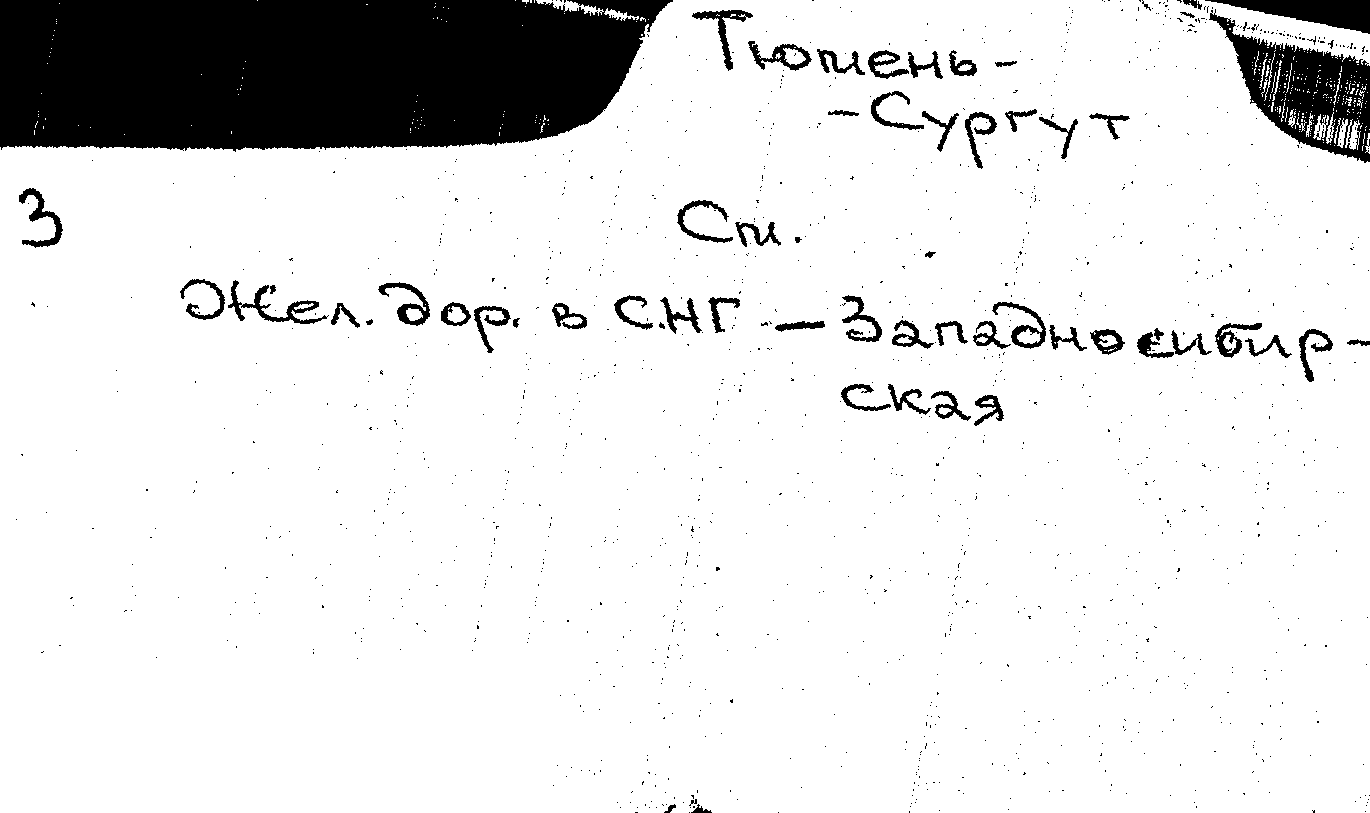 Тюмень-
-Сургут
3
См.
Жел. дор. в СНГ — Западносибир-
ская